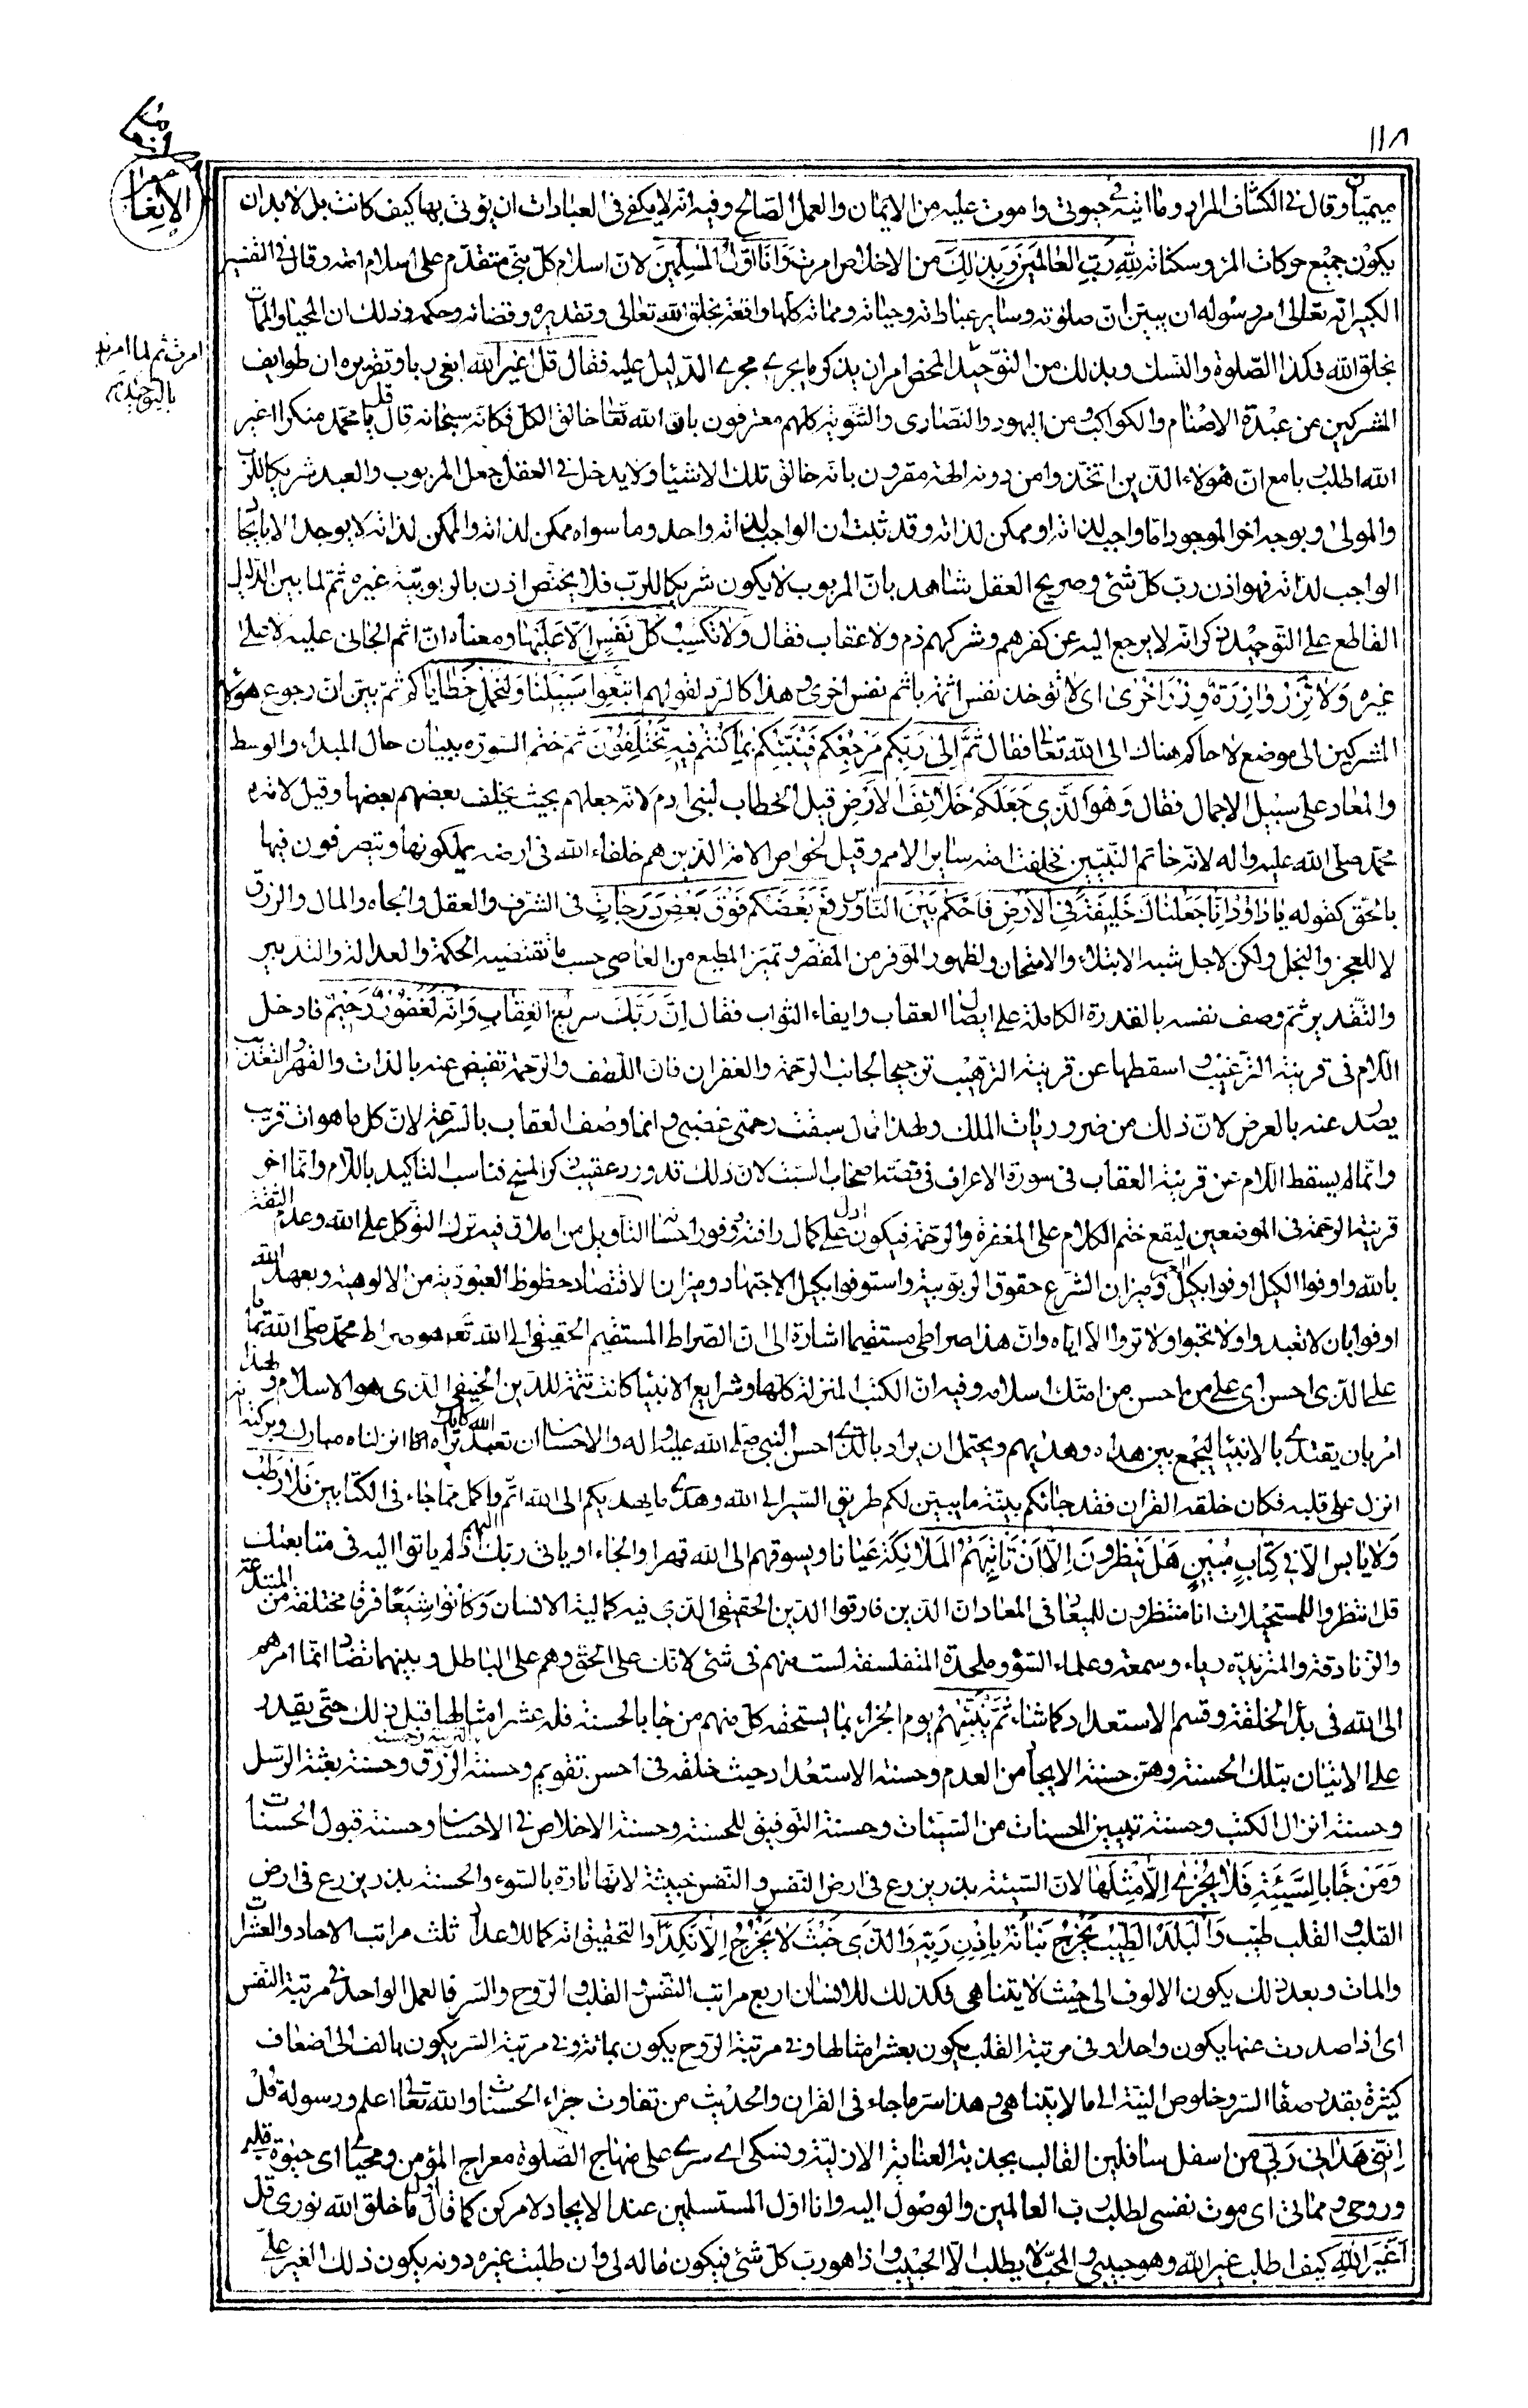 ١١٨
سورة الانعام
ميميّان وقال في الكشاف المراد وما اتيه في حيوتي واموت عليه من الايمان والعمل الصّالح وفيه انّه لا يكفي في العبادات ان يؤتى بها كيف كانت بل لا بد ان
يكون جميع حركات المرء وسكناته لِلّهِ رَبِّ العَالَمِينَ وَبِذلِكَ من الاخلاص امرت وَانَا اوّلُ المُسْلِمِينَ لانّ اسلام كلّ نبيّ متقدّم على اسلام امته وقال في التفسير
الكبير انّه تعالى امر رسوله ان يبيّن انّ صلوته وساير عباداته وحياته ومماته كلها واقعة بخلق الله تعالى وتقديره وقضائه وحكمه وذلك ان المحيا والممات
بخلق الله فكذا الصّلوة والنسك وبذلك من التوحيد المحض امرت
ثم لما امره بالتوحيد
امر ان يذكر ما يجري مجرى الدّليل عليه فقال قل اغير الله ابغي ربا وتقريره ان طوايف
المشركين من عبدة الاصنام والكواكب ومن اليهود والنصارى والثنوية كلهم معترفون بان الله تعالى خالق الكل فكانّه سبحانه قال قل يا محمد منكرا اغير
الله اطلب ربا مع انّ هؤلاء الذين اتخذوا من دونه الهة مقرون بانه خالق تلك الاشياء ولا يدخل في العقل جعل المربوب والعبد شريكا للرّب
والمولى وبوجه اخر الموجود اما واجب لذاته او ممكن لذاته وقد ثبت ان الواجب لذاته واحد وما سواه ممكن لذاته والممكن لذاته لا يوجد الا بايجاد
الواجب لذاته فهو اذن ربّ كلّ شئ وصريح العقل شاهد بانّ المربوب لا يكون شريكا للربّ فلا يختص اذن بالربوبيّة غيره ثمّ لما بين الدليل
القاطع على التوحيد ذكر انّه لا يرجع اليه عن كفرهم وشركهم ذم ولا عقاب فقال وَلَا تَكْسِبُ كُلُّ نَفْسٍ اِلَّا عَلَيْهَا ومعناه انّ اثم الجاني عليه لا على
غيره وَلَا تَزِرُ وَازِرَةٌ وِزْرَ اُخْرى اى لا تؤخذ نفس اثمة باثم نفس اخرى وهذا كالرّد لقولهم اتَّبِعُوا سَبِيلَنَا وَلْنَحْمِلْ خَطَايَاكُمْ ثمّ بيّن ان رجوع هؤلاء
المشركين الى موضع لا حاكم هناك الى الله تعالى فقال ثُمَّ اِلى رَبِّكُمْ مَرْجِعُكُمْ فَيُنَبِّئُكُمْ بِمَا كُنْتُمْ فِيهِ تَخْتَلِفُونَ ثم ختم السورة ببيان حال المبداء والوسط
والمعاد على سبيل الاجمال فقال وَهُوَ الَّذِي جَعَلَكُمْ خَلَائِفَ الْاَرْضِ قيل الخطاب لبنى ادم لانه جعلهم بحيث يخلف بعضهم بعضا وقيل لامة
محمّد صلى الله عليه واله لانّه خاتم النّبيّين فخلفت امته ساير الامم وقيل لخواص الامة الذين هم خلفاء الله في ارضه يملكونها ويتصرفون فيها
بالحق كقوله يَا دَاوُدُ اِنَّا جَعَلْنَاكَ خَلِيفَةً فِي الْاَرْضِ فَاحْكُمْ بَيْنَ النَّاسِ وَرَفَعَ بَعْضَكُمْ فَوْقَ بَعْضٍ دَرَجَاتٍ في الشرف والعقل والجاه والمال والرزق
لا للعجز والبخل ولكن لاجل شبه الابتلاء والامتحان ولظهور الموفر من المقصر وتميز المطيع من العاصي حسب ما تقتضيه الحكمة والعدالة والتدبير
والتّقدير ثمّ وصف نفسه بالقدرة الكاملة على ايصال العقاب وايفاء الثواب فقال اِنَّ رَبَّكَ سَرِيعُ الْعِقَابِ وَاِنَّهُ لَغَفُورٌ رَحِيمٌ فادخل
اللام في قرينة الترغيب واسقطها عن قرينة الترهيب ترجيحا لجانب الرّحمة والغفران فان اللطف والرحمة تفيض عنه بالذات والقهر والتعذيب
يصدر عنه بالعرض لانّ ذلك من ضروريات الملك ولهذا قال سبقت رحمتي غضبي وانما وصف العقاب بالسّرعة لانّ كل ما هو ات قريب
وانّما لم يسقط اللام عن قرينة العقاب في سورة الاعراف في قصّة اصحاب السبت لانّ ذلك قد ورد عقيب ذكر المسخ فناسب التاكيد باللام وانّما اخر
قرينة الرحمة في الموضعين ليقع ختم الكلام على المغفرة والرحمة فيكون ادل على كمال رافته ووفور احسانه التاويل من املاق فيه ترك التوكل على الله وعدم الثقة
بالله واوفوا الكيل اوفوا بكيل العمر وميزان الشرع حقوق الربوبية واستوفوا بكيل الاجتهاد وميزان الاقتصاد حظوظ العبوديّة من الالوهية وبعهد الله
اوفوا بان لا تعبدوا ولا تحبوا ولا تروا الّا اياه وانّ هذا صراطي مستقيما اشارة الى انّ الصّراط المستقيم الحقيقي الى الله تعالى هو صراط محمّد صلى الله تماما
على الذى احسن اى على من احسن من امتك اسلامه وفيه انّ الكتب المنزلة كلها وشرايع الانبيا كانت تتمة للدّين الحنيفي الذي هو الاسلام ولهذا
امر بان يقتدي بالانبيا ليجمع بين هداه وهديهم ويحتمل ان يراد بالذي احسن النبي صلى الله عليه واله والاحسان ان تعبد الله كانك تراه انزلناه مبارك وبركته انه
انزل على قلبه فكان خلقه القران فقد جاءكم بيّنة ما يبيّن لكم طريق السّير الى الله وهدى ما يهديكم الى الله اتم واكمل مما جاء في الكتابين وَلَا رَطْبٍ
وَلَا يَابِسٍ اِلَّا فِي كِتَابٍ مُبِينٍ هَلْ يَنْظُرُونَ اِلَّا اَنْ تَاْتِيَهُمُ الْمَلَائِكَةُ عيانا ويسوقهم الى الله قهرا والجاء او ياتى ربّك اليهم اذ لم ياتوا اليه في متابعتك
قل انتظروا للمستحيلات انا منتظرون للميعاد في المعاد ان الذين فارقوا الدين الحقيقي الذي فيه كمالية الانسان وَكَانُوا شِيَعًا فرقا مختلفة من المبتدعة
والزنادقة والمتزيّدة رياء وسمعة وعلماء السّوء وملحدة المتفلسفة لست منهم في شئ لانك على الحق وهم على الباطل وبينهما تضاد انما امرهم
الى الله في بدء الخلقة وقسم الاستعداد كما شاء ثُمَّ يُنَبِّئُهُمْ يوم الجزاء بما يستحقه كل منهم من جا بالحسنة فله عشر امثالها قبل ذلك حتّى يقدر
على الاتيان بتلك الحسنة وهى حسنة الايجاد من العدم وحسنة الاستعداد حيث خلقه في احسن تقويم وحسنة التربية وحسنة الرّزق وحسنة بعثة الرّسل
وحسنة انزال الكتب وحسنة تبيين الحسنات من السّيئات وحسنة التوفيق للحسنة وحسنة الاخلاص في الاحسان وحسنة قبول الحسنات
وَمَنْ جَا بِالسَّيِّئَةِ فَلَا يُجْزى اِلَّا مِثْلَهَا لانّ السّيئة بذر يزرع في ارض النفس والنفس خبيثة لانها امّارة بالسّوء والحسنة بذر يزرع في ارض
القلب والقلب طيّب وَالْبَلَدُ الطَّيِّبُ يَخْرُجُ نَبَاتُهُ بِاِذْنِ رَبِّهِ وَالَّذِي خَبُثَ لَا يَخْرُجُ اِلَّا نَكِدًا والتحقيق انه كما للاعداد ثلث مراتب الاحاد والعشرات
والمات وبعد ذلك يكون الالوف الى حيث لا يتناهى فكذلك للانسان اربع مراتب النفس والقلب والرّوح والسّر فالعمل الواحد في مرتبة النّفس
اى اذا صدرت عنها يكون واحدا وفي مرتبة القلب يكون بعشر امثالها وفي مرتبة الرّوح يكون بمائة وفي مرتبة السّر يكون بالف الى اضعاف
كثيرة بقدر صفاء السّر وخلوص النيّة الى ما لا يتناهى وهذا سرّ ما جاء في القران والحديث من تفاوت جزاء الحسنات والله تعالى اعلم ورسوله قُلْ
اِنَّنِي هَدَانِي رَبِّي من اسفل سافلين القالب بجذبة العناية الازليّة ونسكى اى سرى على منهاج الصّلوة معراج المؤمن ومحياى اى حيوة قلبى
وروحى ومماتى اى موت نفسى لطلب ربّ العالمين والوصول اليه وانا اوّل المستسلمين عند الايجاد لامر كن كما قال اول ما خلق الله نورى قل
اَغَيْرَ اللهِ كيف اطلب غير الله وهو حبيبى والمحبّ لا يطلب الّا الحبيب واذا هو ربّ كلّ شئ فيكون ما له لى وان طلبت غيره دونه يكون ذلك الغير علىّ